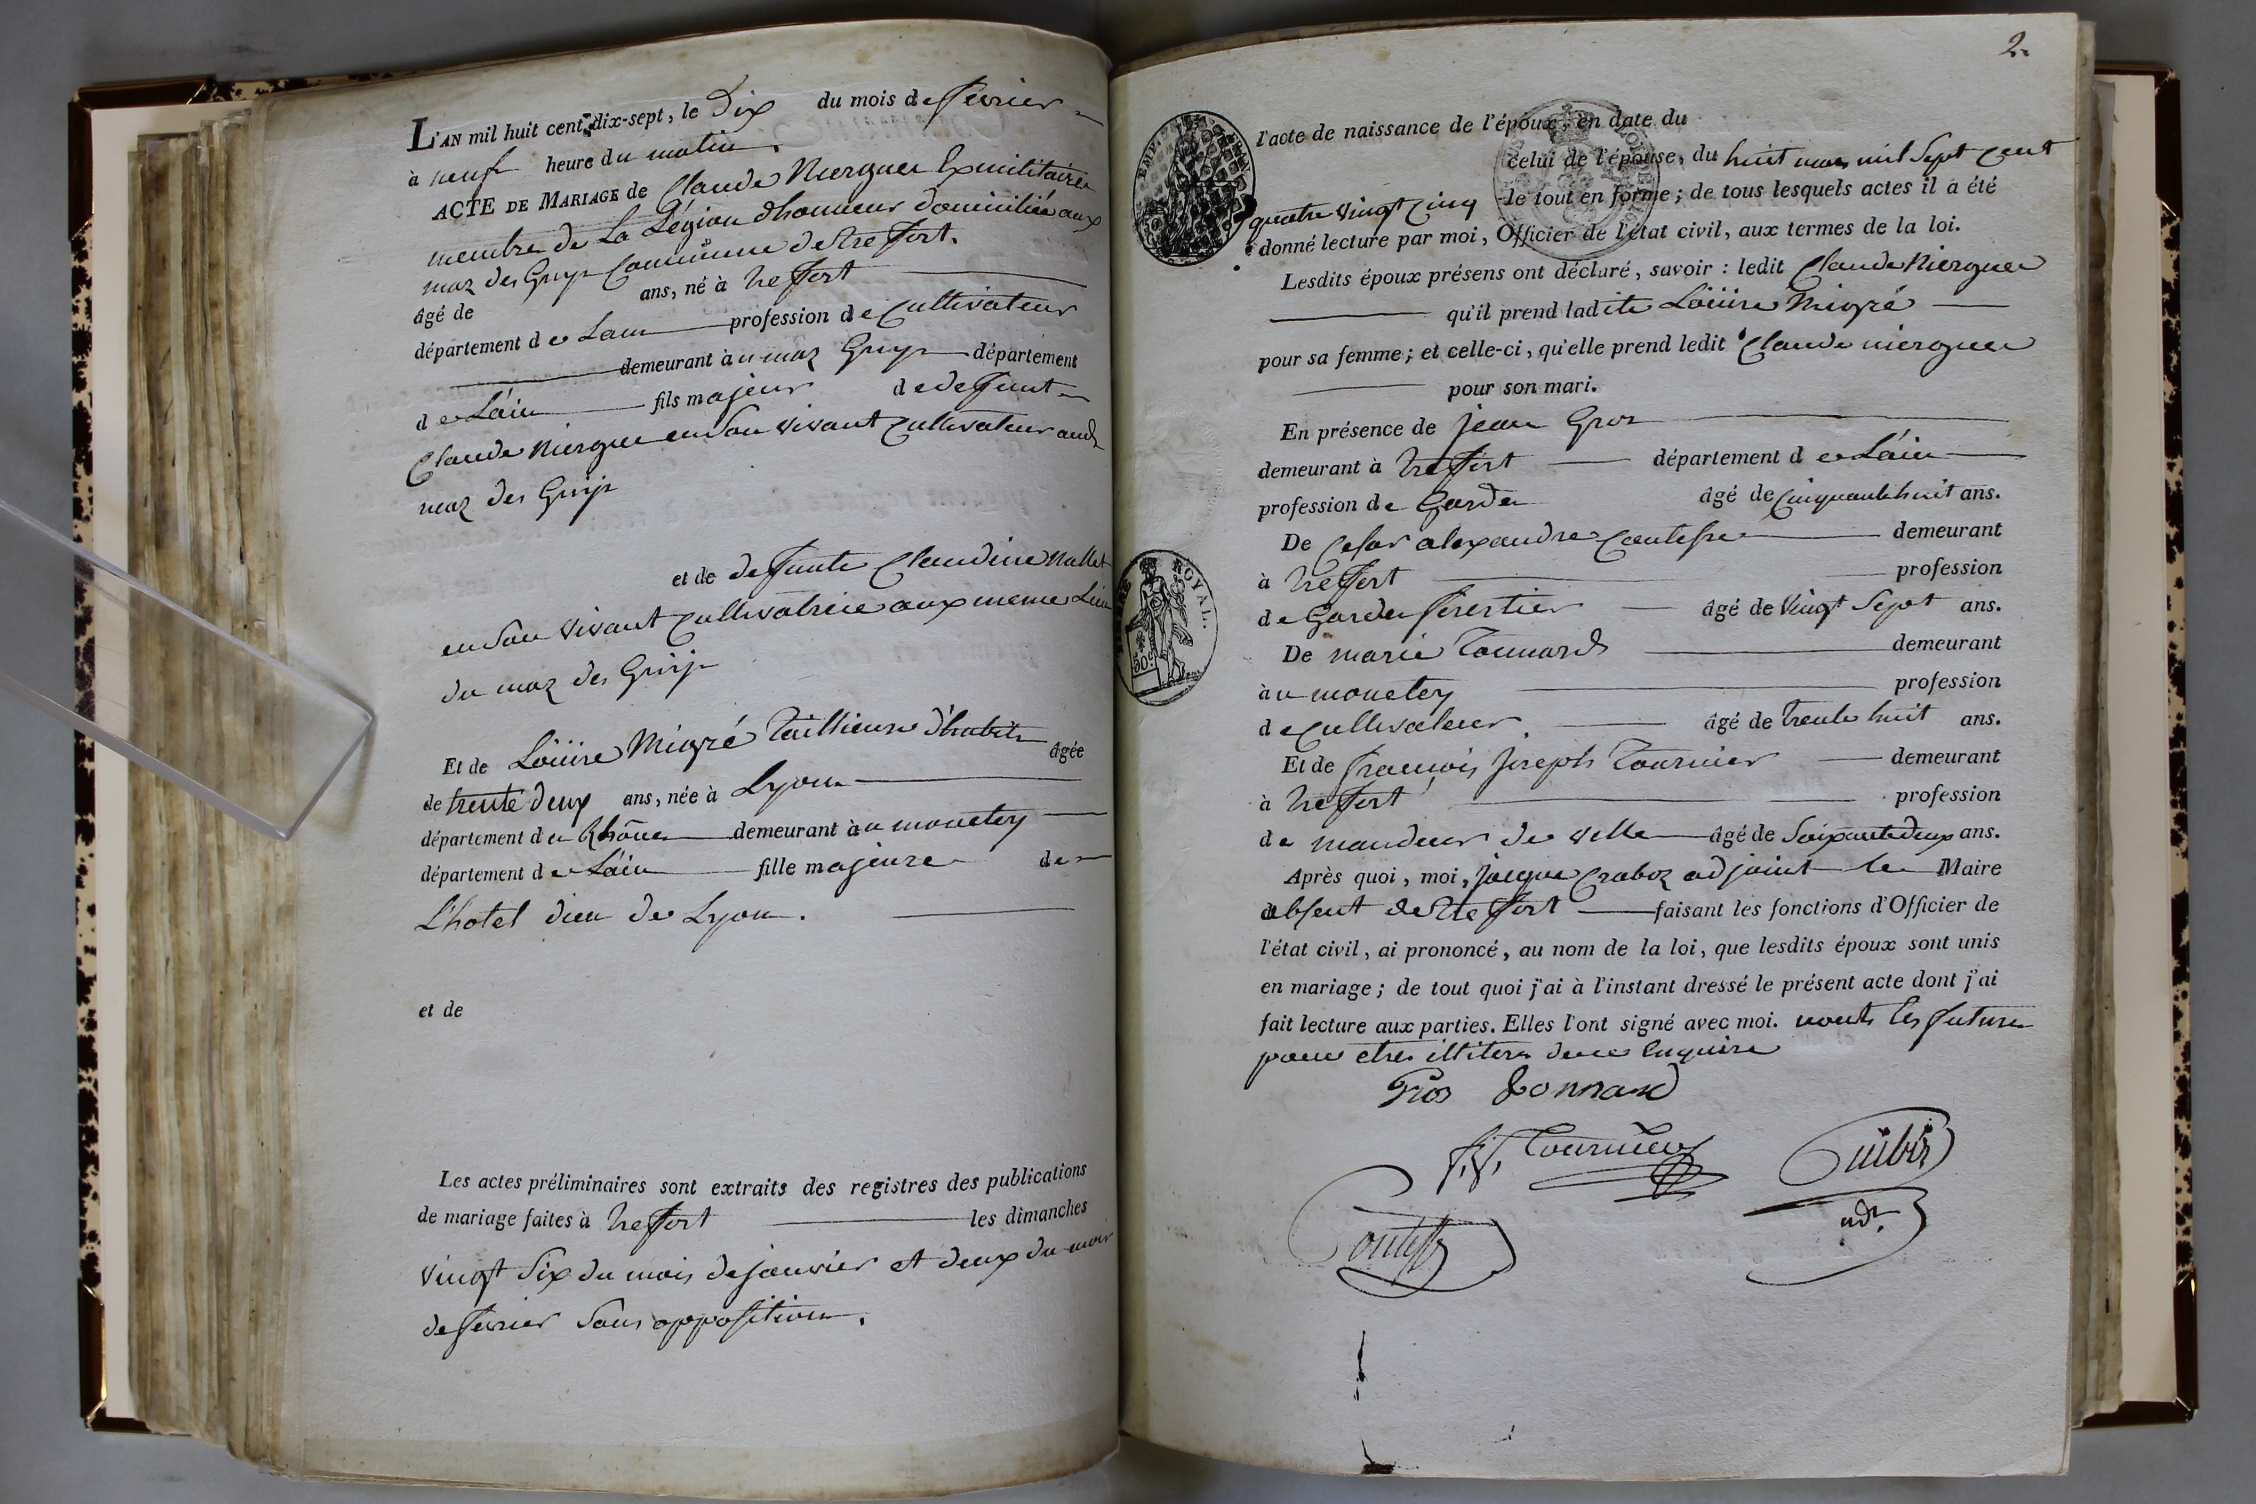 L'AN mil huit cent dix-sept, le Dix du mois de fevrier
à neuf heure du matin.
ACTE DE MARIAGE de Claude Niergue Exmilitaire
membre de La Légion dhonneur domicilié aux
maz des Gryp Commune de treffort.
âgé de ans, né à treffort
département de Lain profession de Cultivateur
demeurant au maz Gryp département
de Láin fils majeur de deffunt
Claude Niergue en Son vivant Cultivateur aud
maz des Gryp
et de deffunte Claudine Mallet
en Son vivant Cultivatrice aux meme Lieu
du maz des Gryp
Et de Loüise Migré Taillieuse d'habits âgée
de trente deux ans, née à Lyon
département du Rhône demeurant au monetey
département de Láin fille majeure de
L'hotel dieu de Lyon.
et de
Les actes préliminaires sont extraits des registres des publications
de mariage faites à treffort les dimanches
vingt Six du mois de janvier et deux du mois
de fevrier Sans opposition.
2.
l'acte de naissance de l'époux, en date du
celui de l'épouse, du huit mars mil Sept cent
quatre vingt Cinq le tout en forme; de tous lesquels actes il a été
donné lecture par moi, Officier de l'état civil, aux termes de la loi.
Lesdits époux présens ont déclaré, savoir : ledit Claude Niergue
qu'il prend ladite Loüise Migré
pour sa femme; et celle-ci, qu'elle prend ledit Claude niergue
pour son mari.
En présence de jean Gros
demeurant à treffort département de Láin
profession de Garde âgé de Cinquante huit ans.
De Cesar alexandre demeurant
à treffort profession
de Garde forestier âgé de Vingt Sept ans.
De marie Tonnard demeurant
au monetey profession
de Cultivateur âgé de trente huit ans.
Et de françois joseph Tournier demeurant
à treffort profession
de mandeur de ville âgé de Soixante deux ans.
Après quoi, moi, jacque adjoint le Maire
absent de treffort faisant les fonctions d'Officier de
l'état civil, ai prononcé, au nom de la loi, que lesdits époux sont unis
en mariage; de tout quoi j'ai à l'instant dressé le présent acte dont j'ai
fait lecture aux parties. Elles l'ont signé avec moi. nonts les futurs
pour etres illiteres de ce Enquire
Gros Tonnard
f.j. Tournier
adt.
TIMBRE ROYAL.
50c